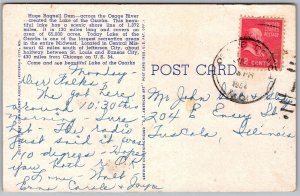 Huge Bagnel Dam—across the Osage River
created the Lake of the Ozarks. This beautiful
lake has a scenic shore line of 1,372
miles, is 130 miles long and covers an
area of 65,000 acres. Today Lake of the
Ozarks is one of the largest recreation areas
in the entire Midwest. Located in Central Missouri
45 miles south of Jefferson City, about
halfway between St. Louis and Kansas City,
430 miles from Chicago on U.S. 54.
Come and see beautiful Lake of the Ozarks
POST CARD
2 CENTS
PM
1954
Monday
Dear Folks
We got here
around 10:30 this
morning. Sure
hot. The radio
just said it was
110 degrees. Hope
you have
Time. Walt
Erma Carole &
Mr John
204 E
Tuscola,
Illinois